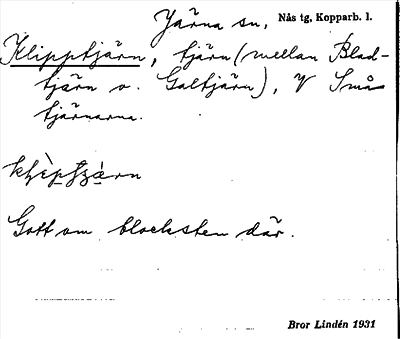 Järna sn. Nås tg, Kopparb. l.
Klipptjärn, tjärn (mellan Blad-
tjärn o. Galtjärn), V Små
tjärnarna.
Gott om blocksten där.
Bror Lindén 1931